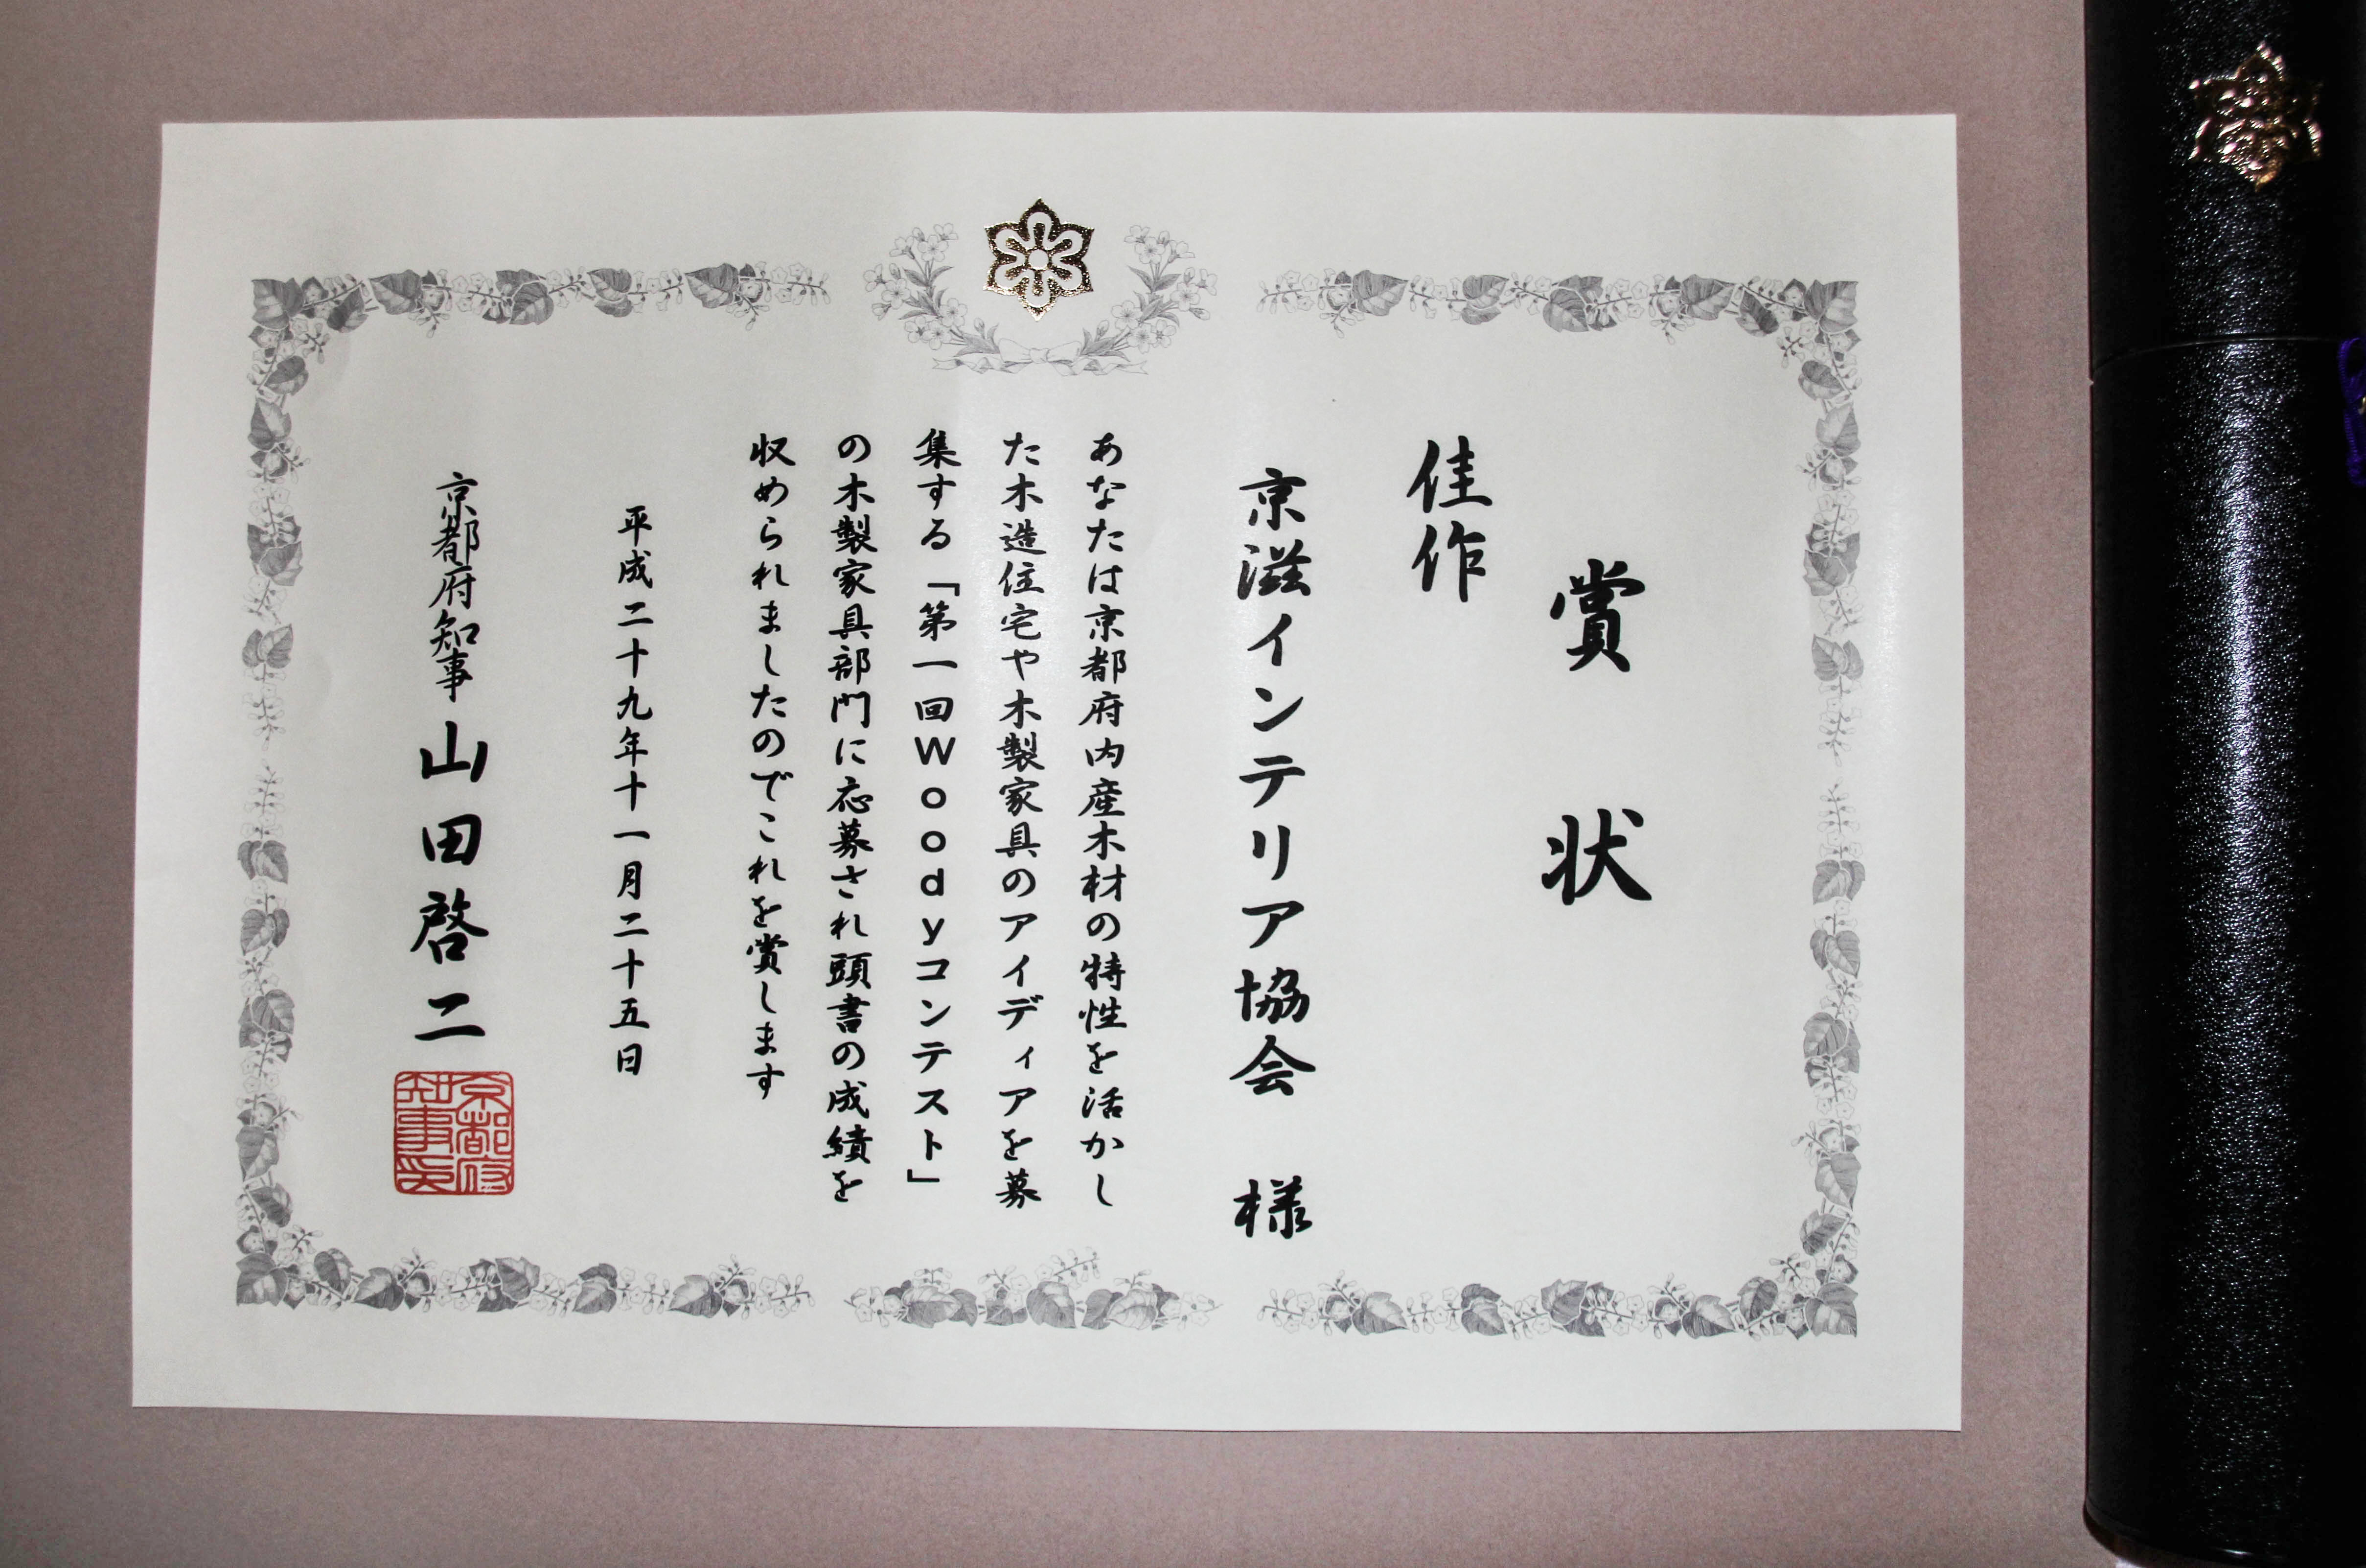 賞状
佳作
京滋インテリア協会 様
あなたは京都府内産木材の特性を活かし
た木造住宅や木製家具のアイディアを募
集する「第一回Woodyコンテスト」
の木製家具部門に応募され頭書の成績を
収められましたのでこれを賞します
平成二十九年十一月二十五日
京都府知事 山田啓二
京都府
知事印